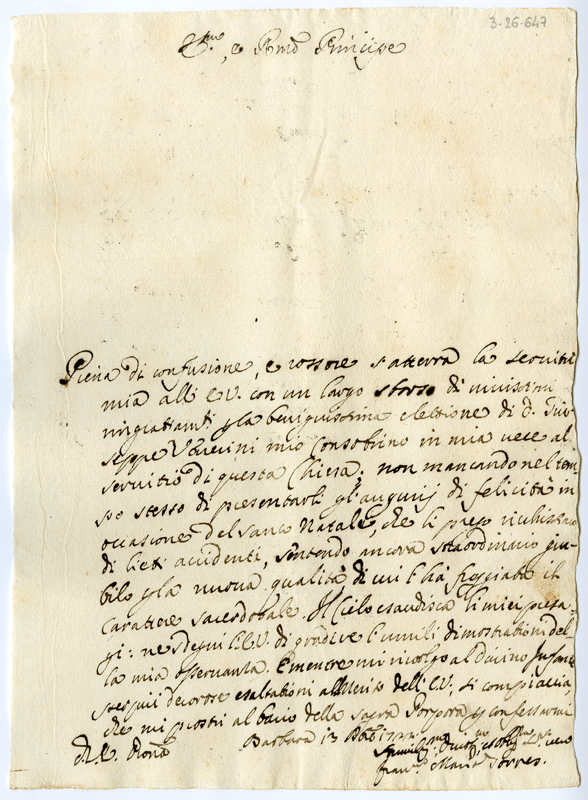 3-26-647
Em.mo, e Rmo Principe
Piena di confusione, e rossore s'atterra la servitù
mia all' E.V. con un largo sborso di vivissimi
ringratiamti p la benignissima elettione di D. Giu-
seppe mio Consobrino in mia vece al
servitio di questa Chiesa; non mancando nel tem-
po stesso di presentarli gl'augurij di felicità in
occasione del santo Natale, che li prego
di lieti accidenti, sentendo ancora straordinario giu-
bilo p la nuova qualità di cui l'hà freggiata il
Carattere sacerdotale. Il Cielo esaudisca li miei presa-
gi: ne sdegni l'E.V. di gradire l'umili dimostrationi del-
la mia osservanza. E mentre mi rivolgo al divino Infante
decorose esaltationi al Merito dell'E.V. si compiaccia,
che mi prostri al bacio della sagra Porpora p confessarmi
Di E. V. Roma Barbara 13 Xbre
Maria Torres.